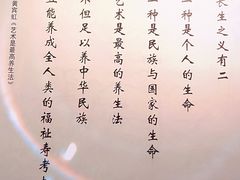 长生之义有二
一种是个人的生命
一种是民族与国家的生命
艺术是最高的养生法
不但足以养中华民族
且能养成全人类的福祉寿考
黄宾虹《艺术是最高养生法》